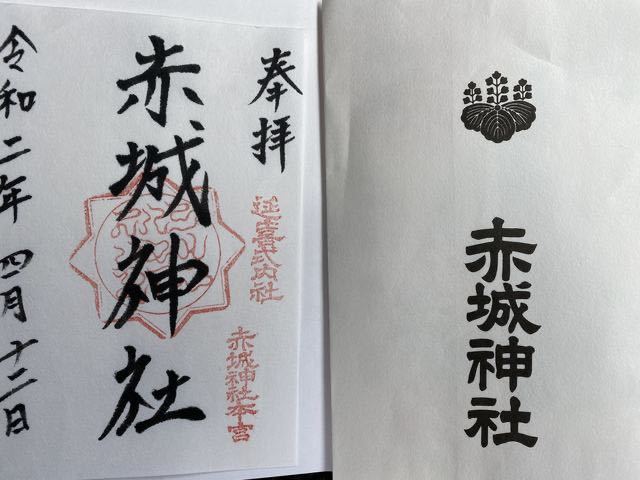 奉拝
延喜式内社
赤城神社本宮
赤城神社
令和二年四月十二日
赤城神社